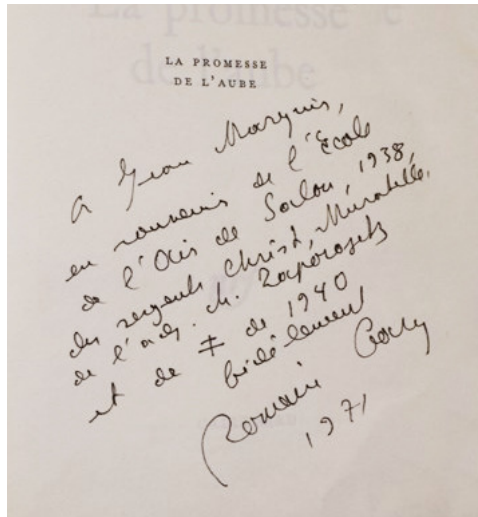 LA PROMESSE
DE L'AUBE
A Jean Marquis,
en souvenir de l'École
de l'Air de Salon, 1938,
des sergents Christ, Muratelle,
de l'adj. M. Zaporojets
et de ‡ de 1940
fidèlement
Romain Gary
1971